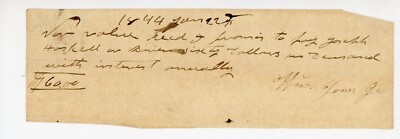 1844 Jan 22
For value recd I promis to pay Joseph
Haskell or order sixty Dollars on Demand
with interest anually
$60.00